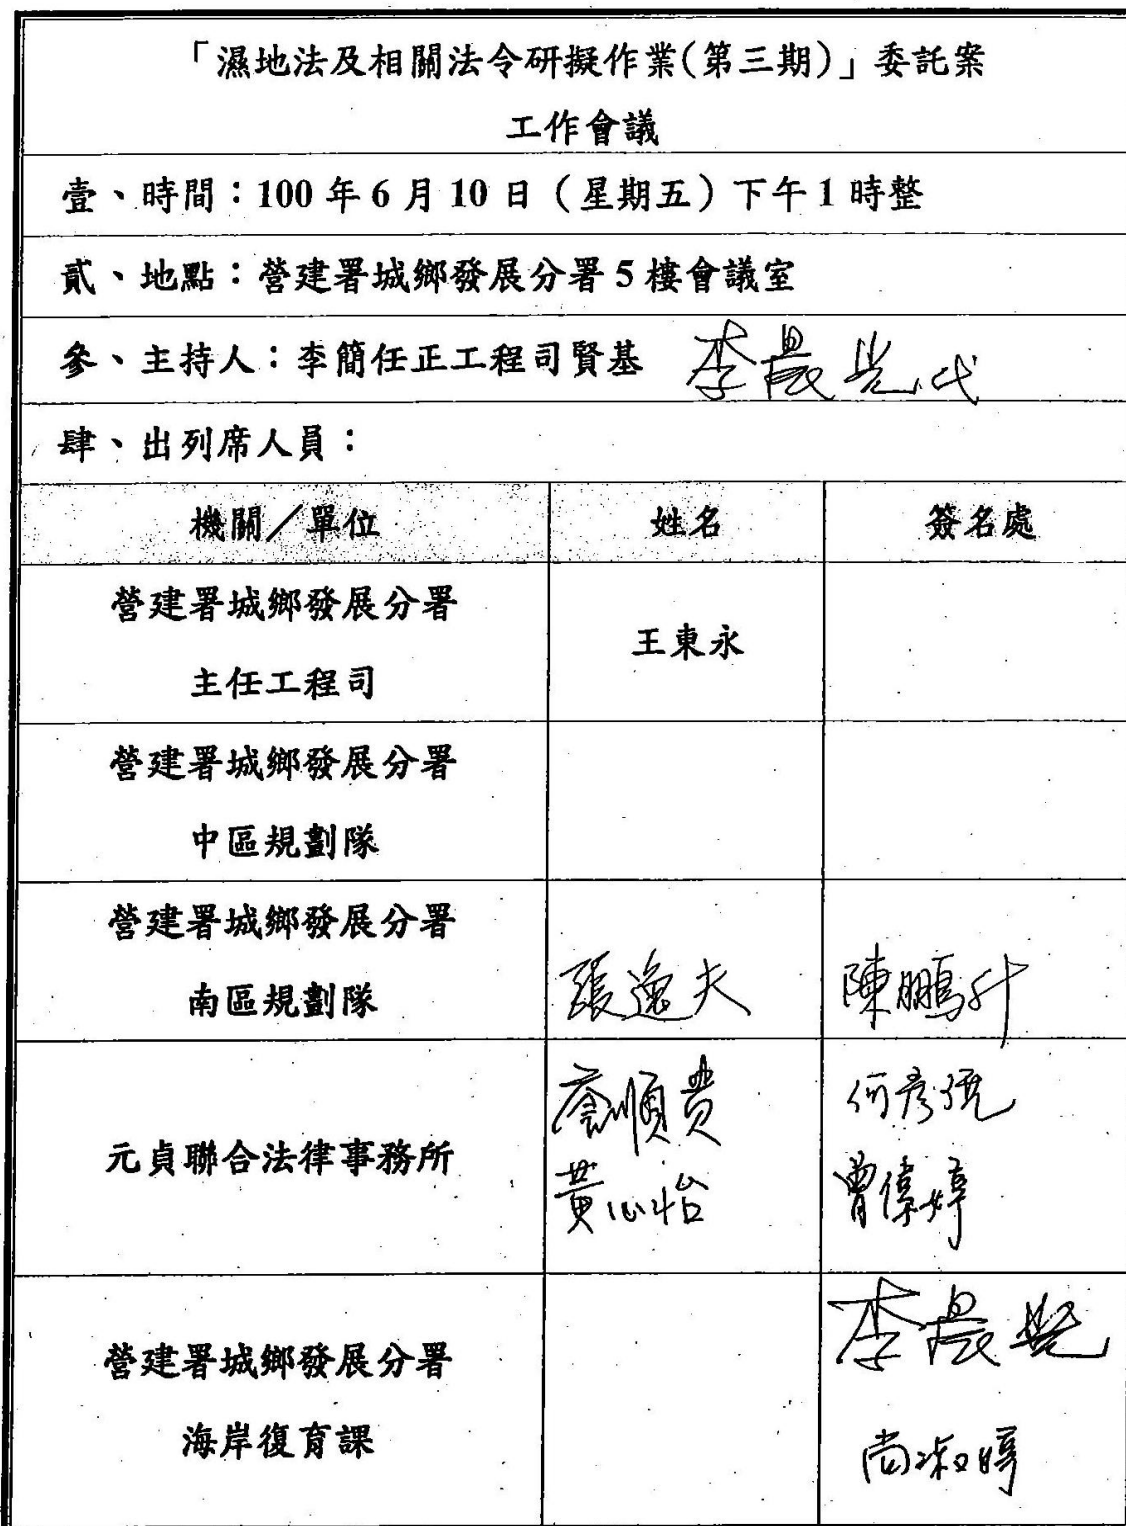 「濕地法及相關法令研擬作業(第三期)」委託案
工作會議
壹、時間：100年6月10日（星期五）下午1時整
貳、地點：營建署城鄉發展分署5樓會議室
參、主持人：李簡任正工程司賢基 李晨光代
肆、出列席人員：
機關／單位 姓名 簽名處
營建署城鄉發展分署
主任工程司
王東永
營建署城鄉發展分署
中區規劃隊
營建署城鄉發展分署
南區規劃隊
張逸夫 陳鵬升
元貞聯合法律事務所
黃心怡
營建署城鄉發展分署
海岸復育課
李晨光
尚淑婷